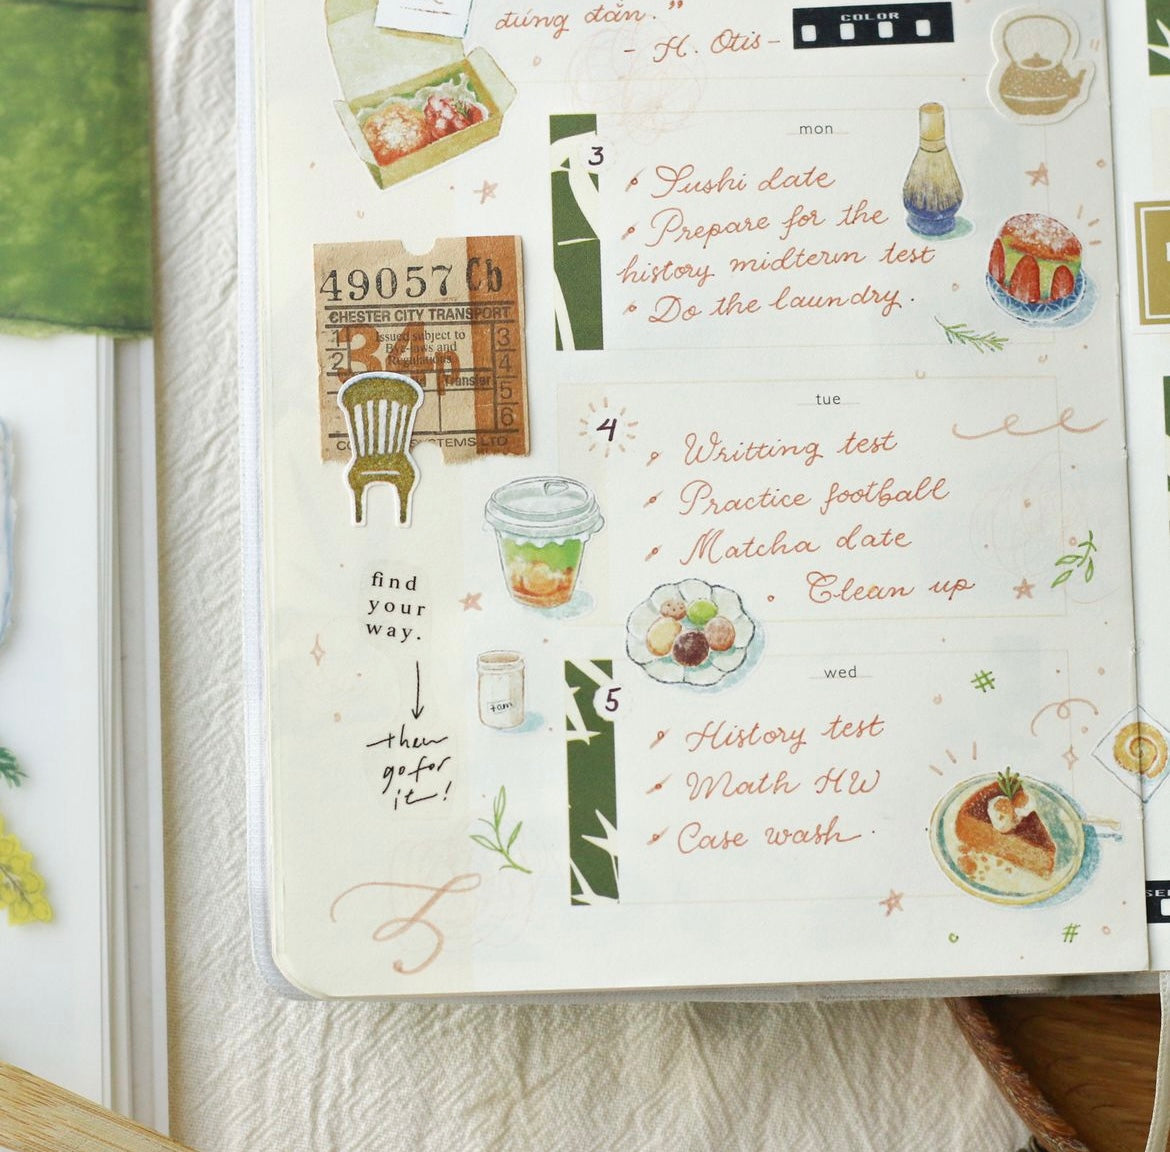 đúng đắn."
- H. Otis -
COLOR
mon
3
Sushi date
Prepare for the
history midterm test
Do the laundry.
49057 Cb
CHESTER CITY TRANSPORT
Issued subject to
Bye-laws and
Regulations
34p
Transfer
1
2
3
4
5
6
tue
4
Writting test
Practice football
Matcha date
Clean up
find
your
way.
then
go for
it!
wed
5
History test
Math HW
Case wash